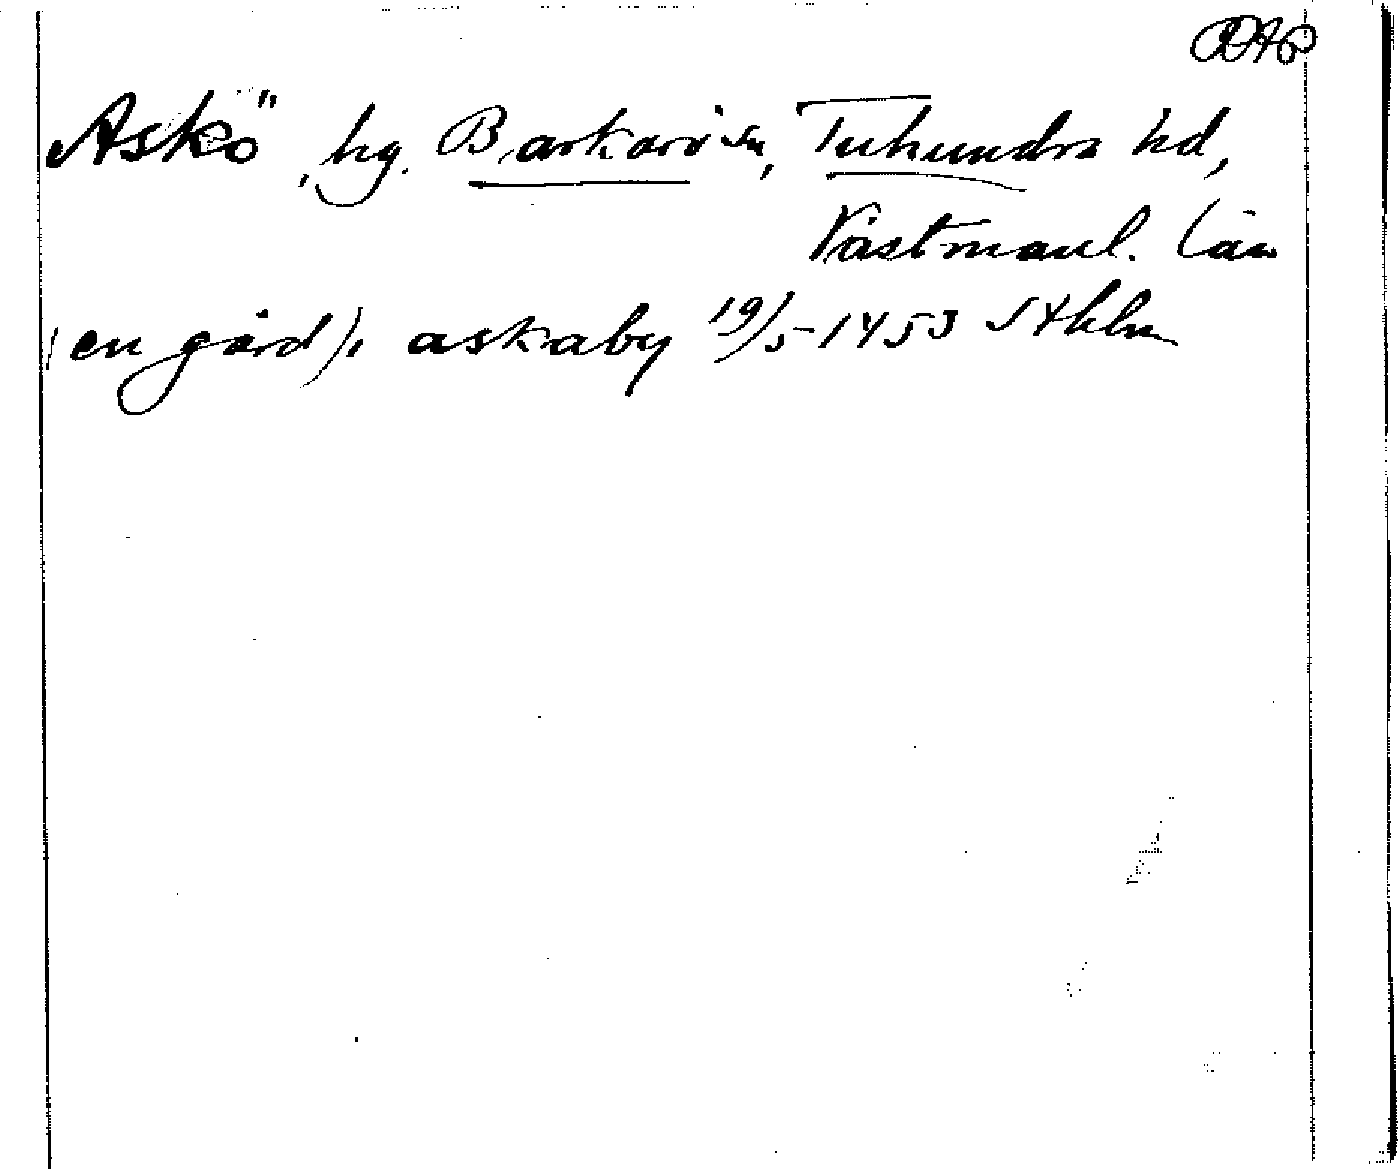 RAp
Askö, hg. Barkarö sn, Tuhundra hd,
Västmanl. län
(en gård), askaby 19/5-1453 Sthlm